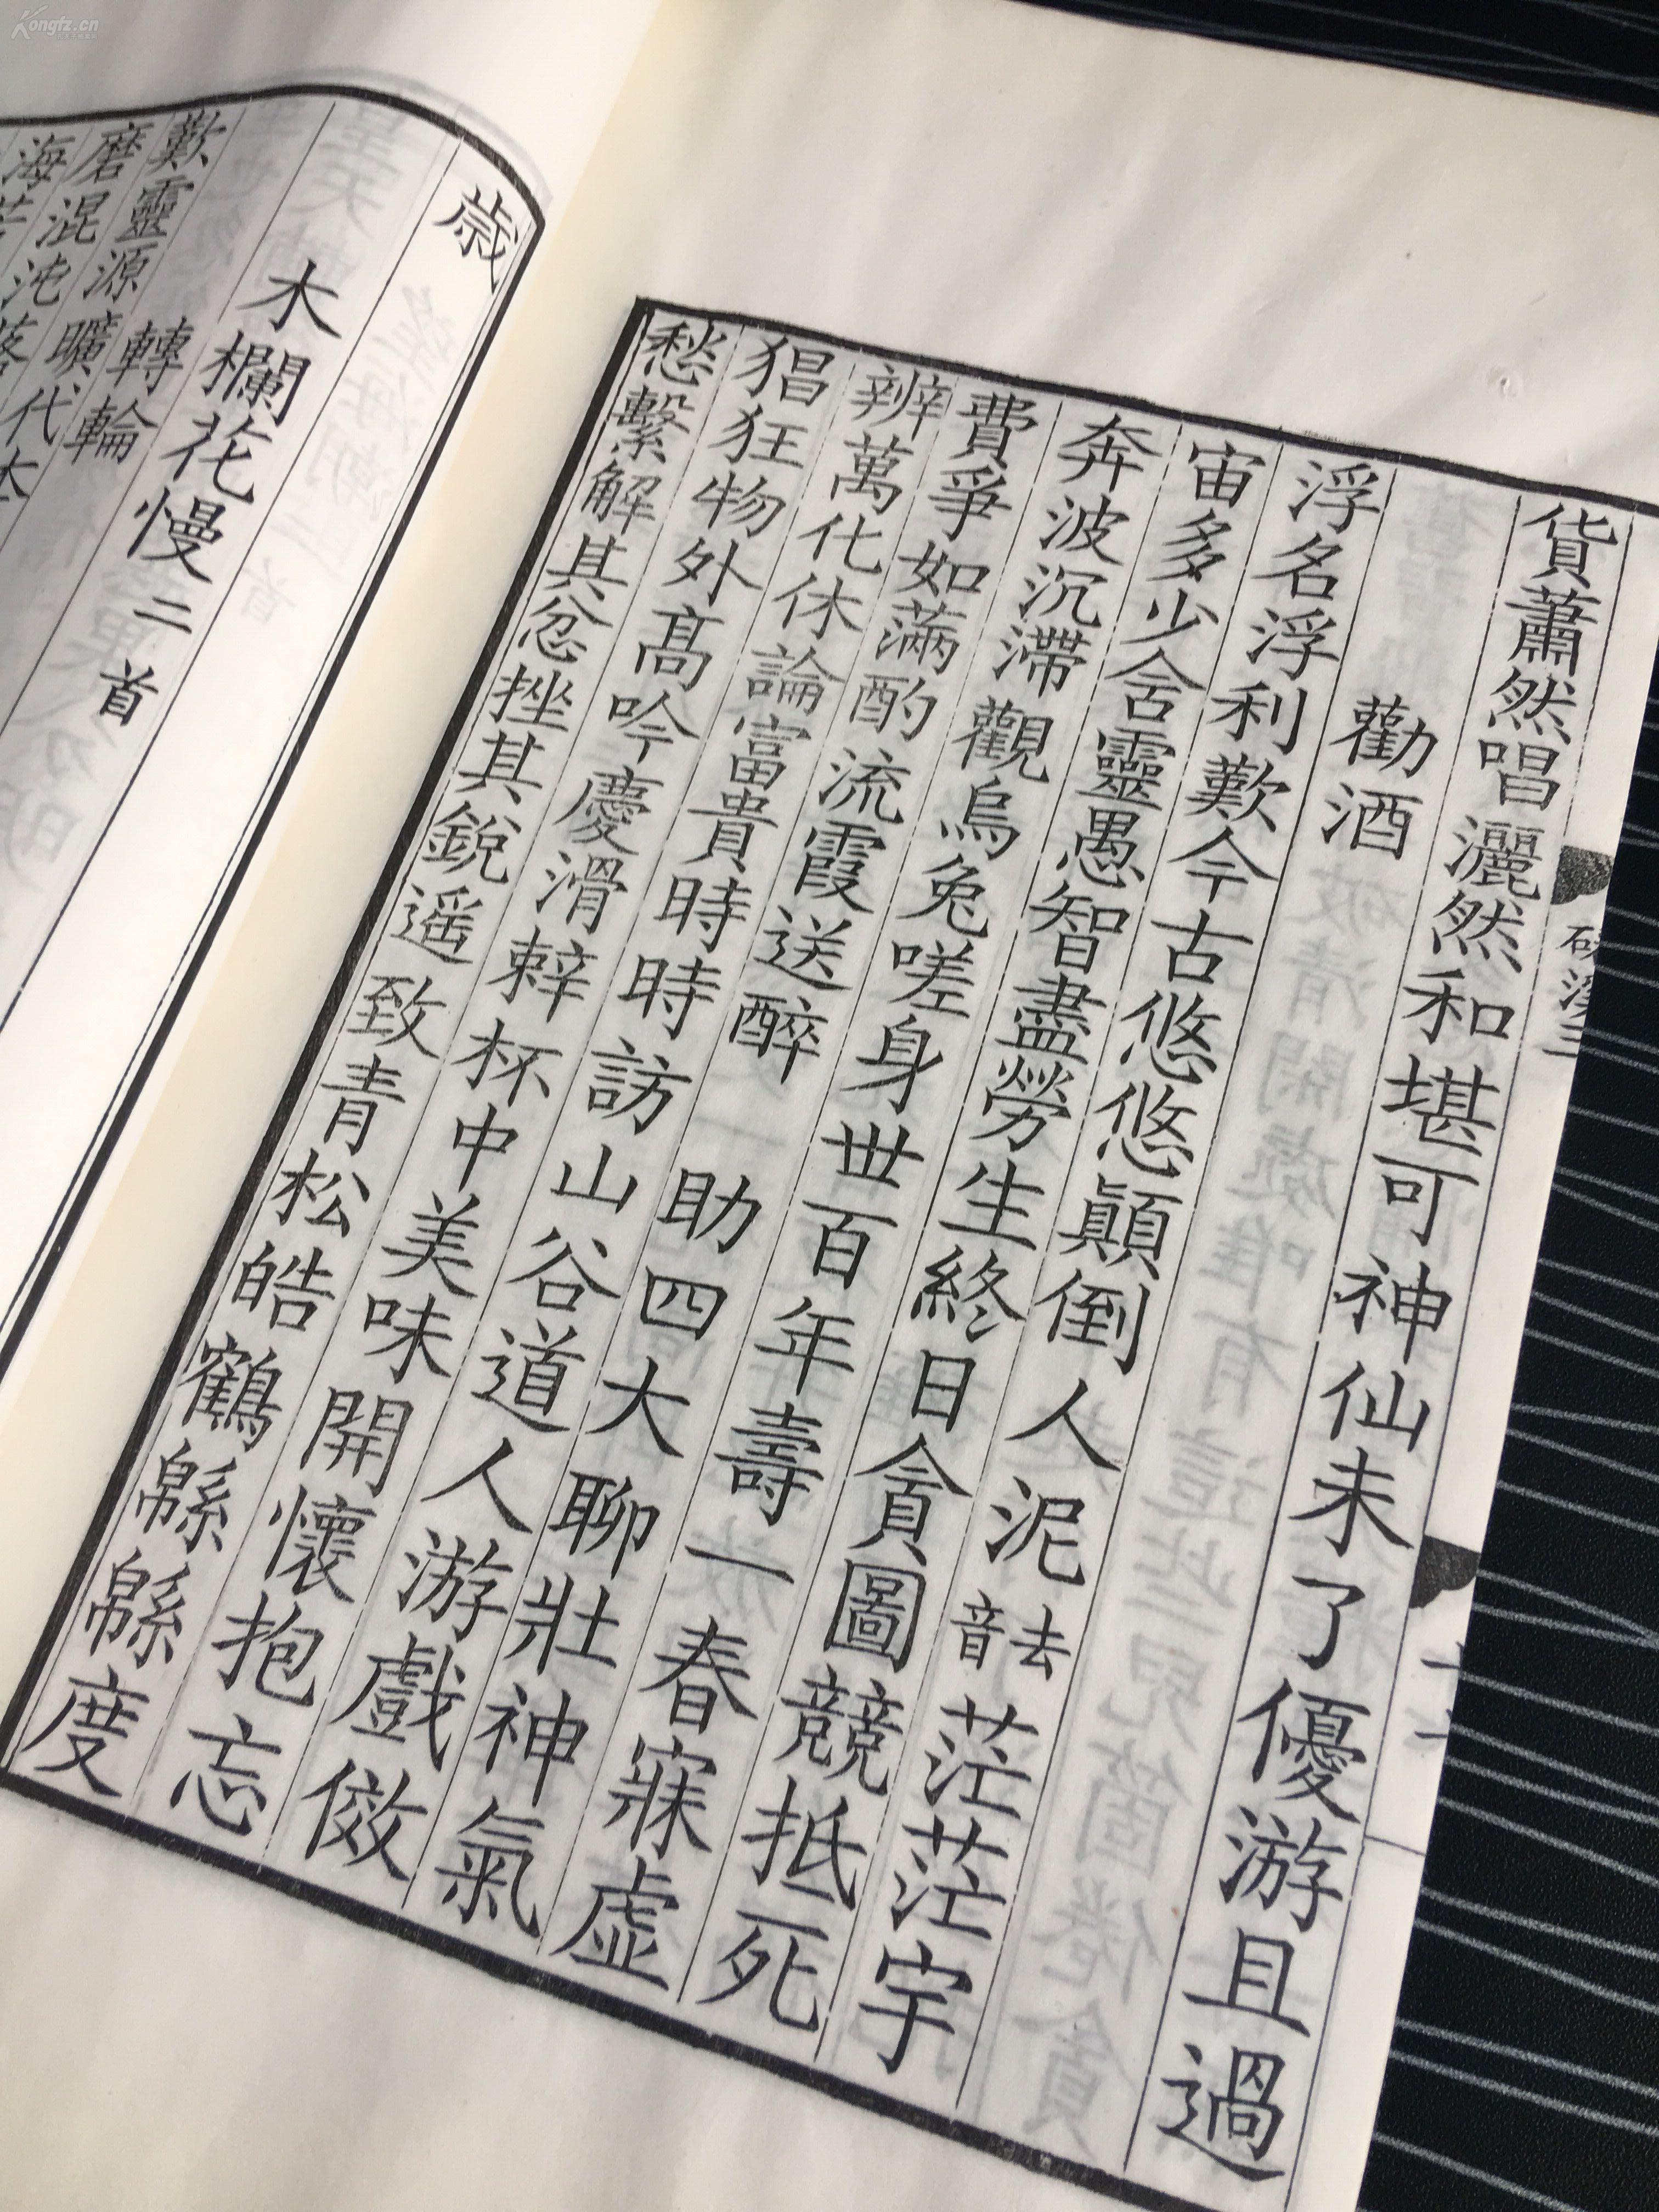 貨蕭然唱灑然和堪可神仙未了優游且過
勸酒
浮名浮利歎今古悠悠顛倒人泥去音茫茫宇
宙多少含靈愚智盡勞生終日貪圖競抵死
奔波沉滯觀烏兔嗟身世百年壽一春寐虛
費爭如滿酌流霞送醉 助四大聊壯神氣
辨萬化休論富貴時時訪山谷道人游戲傚
猖狂物外高吟慶滑辣杯中美味開懷抱忘
愁繫解其忿挫其銳遥致青松皓鶴緜緜度
歲
木欄花慢二首
歎靈源 轉輪
磨混源曠
Kongfz.cn